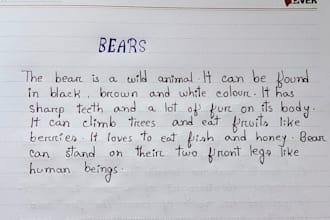 EVER
BEARS
The bear is a wild animal. It can be found
in black, brown and white colour. It has
sharp teeth and a lot of fur on its body.
It can climb trees and eat fruits like
berries. It loves to eat fish and honey. Bear
can stand on their two front legs like
human beings.